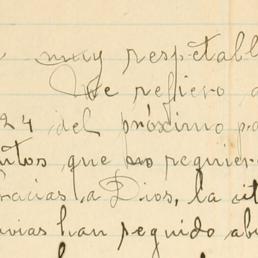 muy respetabl
Me refiero a
24 del próximo pa
ntos que no requier
racias, a Dios, la sit
uvias han seguido abu